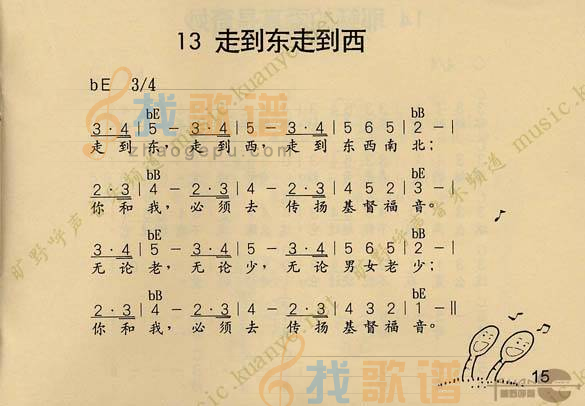 13 走到东走到西
bE 3/4
bE bB
3·4|5 — 3·4|5 — 3·4|5 6 5|2 —|
走到东，走到西，走到东西南北；
bB bE
2·3|4 — 2·3|4 — 2·3|4 5 2|3 —|
你和我，必须去 传扬基督福音。
bE bB
3·4|5 — 3·4|5 — 3·4|5 6 5|2 —|
无论老，无论少，无论男女老少；
bB bE
2·3|4 — 2·3|4 — 2·3|4 3 2|1 —‖
你和我，必须去 传扬基督福音。
15
找歌谱
zhaogepu.com
找歌谱
旷野呼声音乐频道 music.kuanye.net